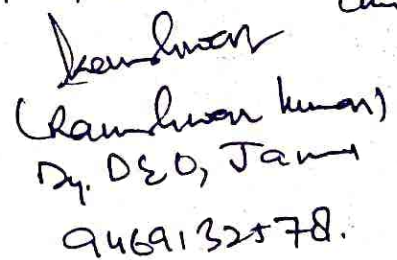 Rameshwar
(Rameshwar Kumar)
Dy. DEO, Jammu
9469132578.